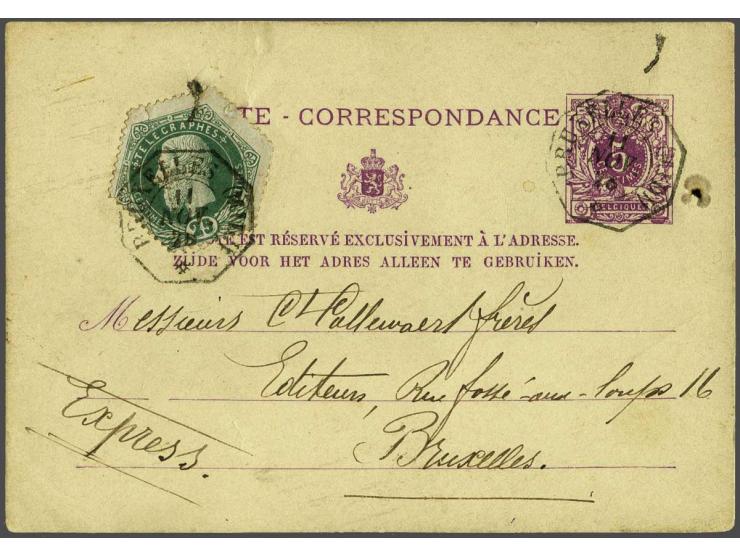 TE - CORRESPONDANCE
TELEGRAPHES
BRUXELLES
11
NOV
78
BRUXELLES
11
NOV
5
BELGIQUE
TE EST RÉSERVÉ EXCLUSIVEMENT À L'ADRESSE.
ZIJDE VOOR HET ADRES ALLEEN TE GEBRUIKEN.
Messieurs Callewaert frères
Editeurs, Rue fossé-aux-loups 16
Express.
Bruxelles.